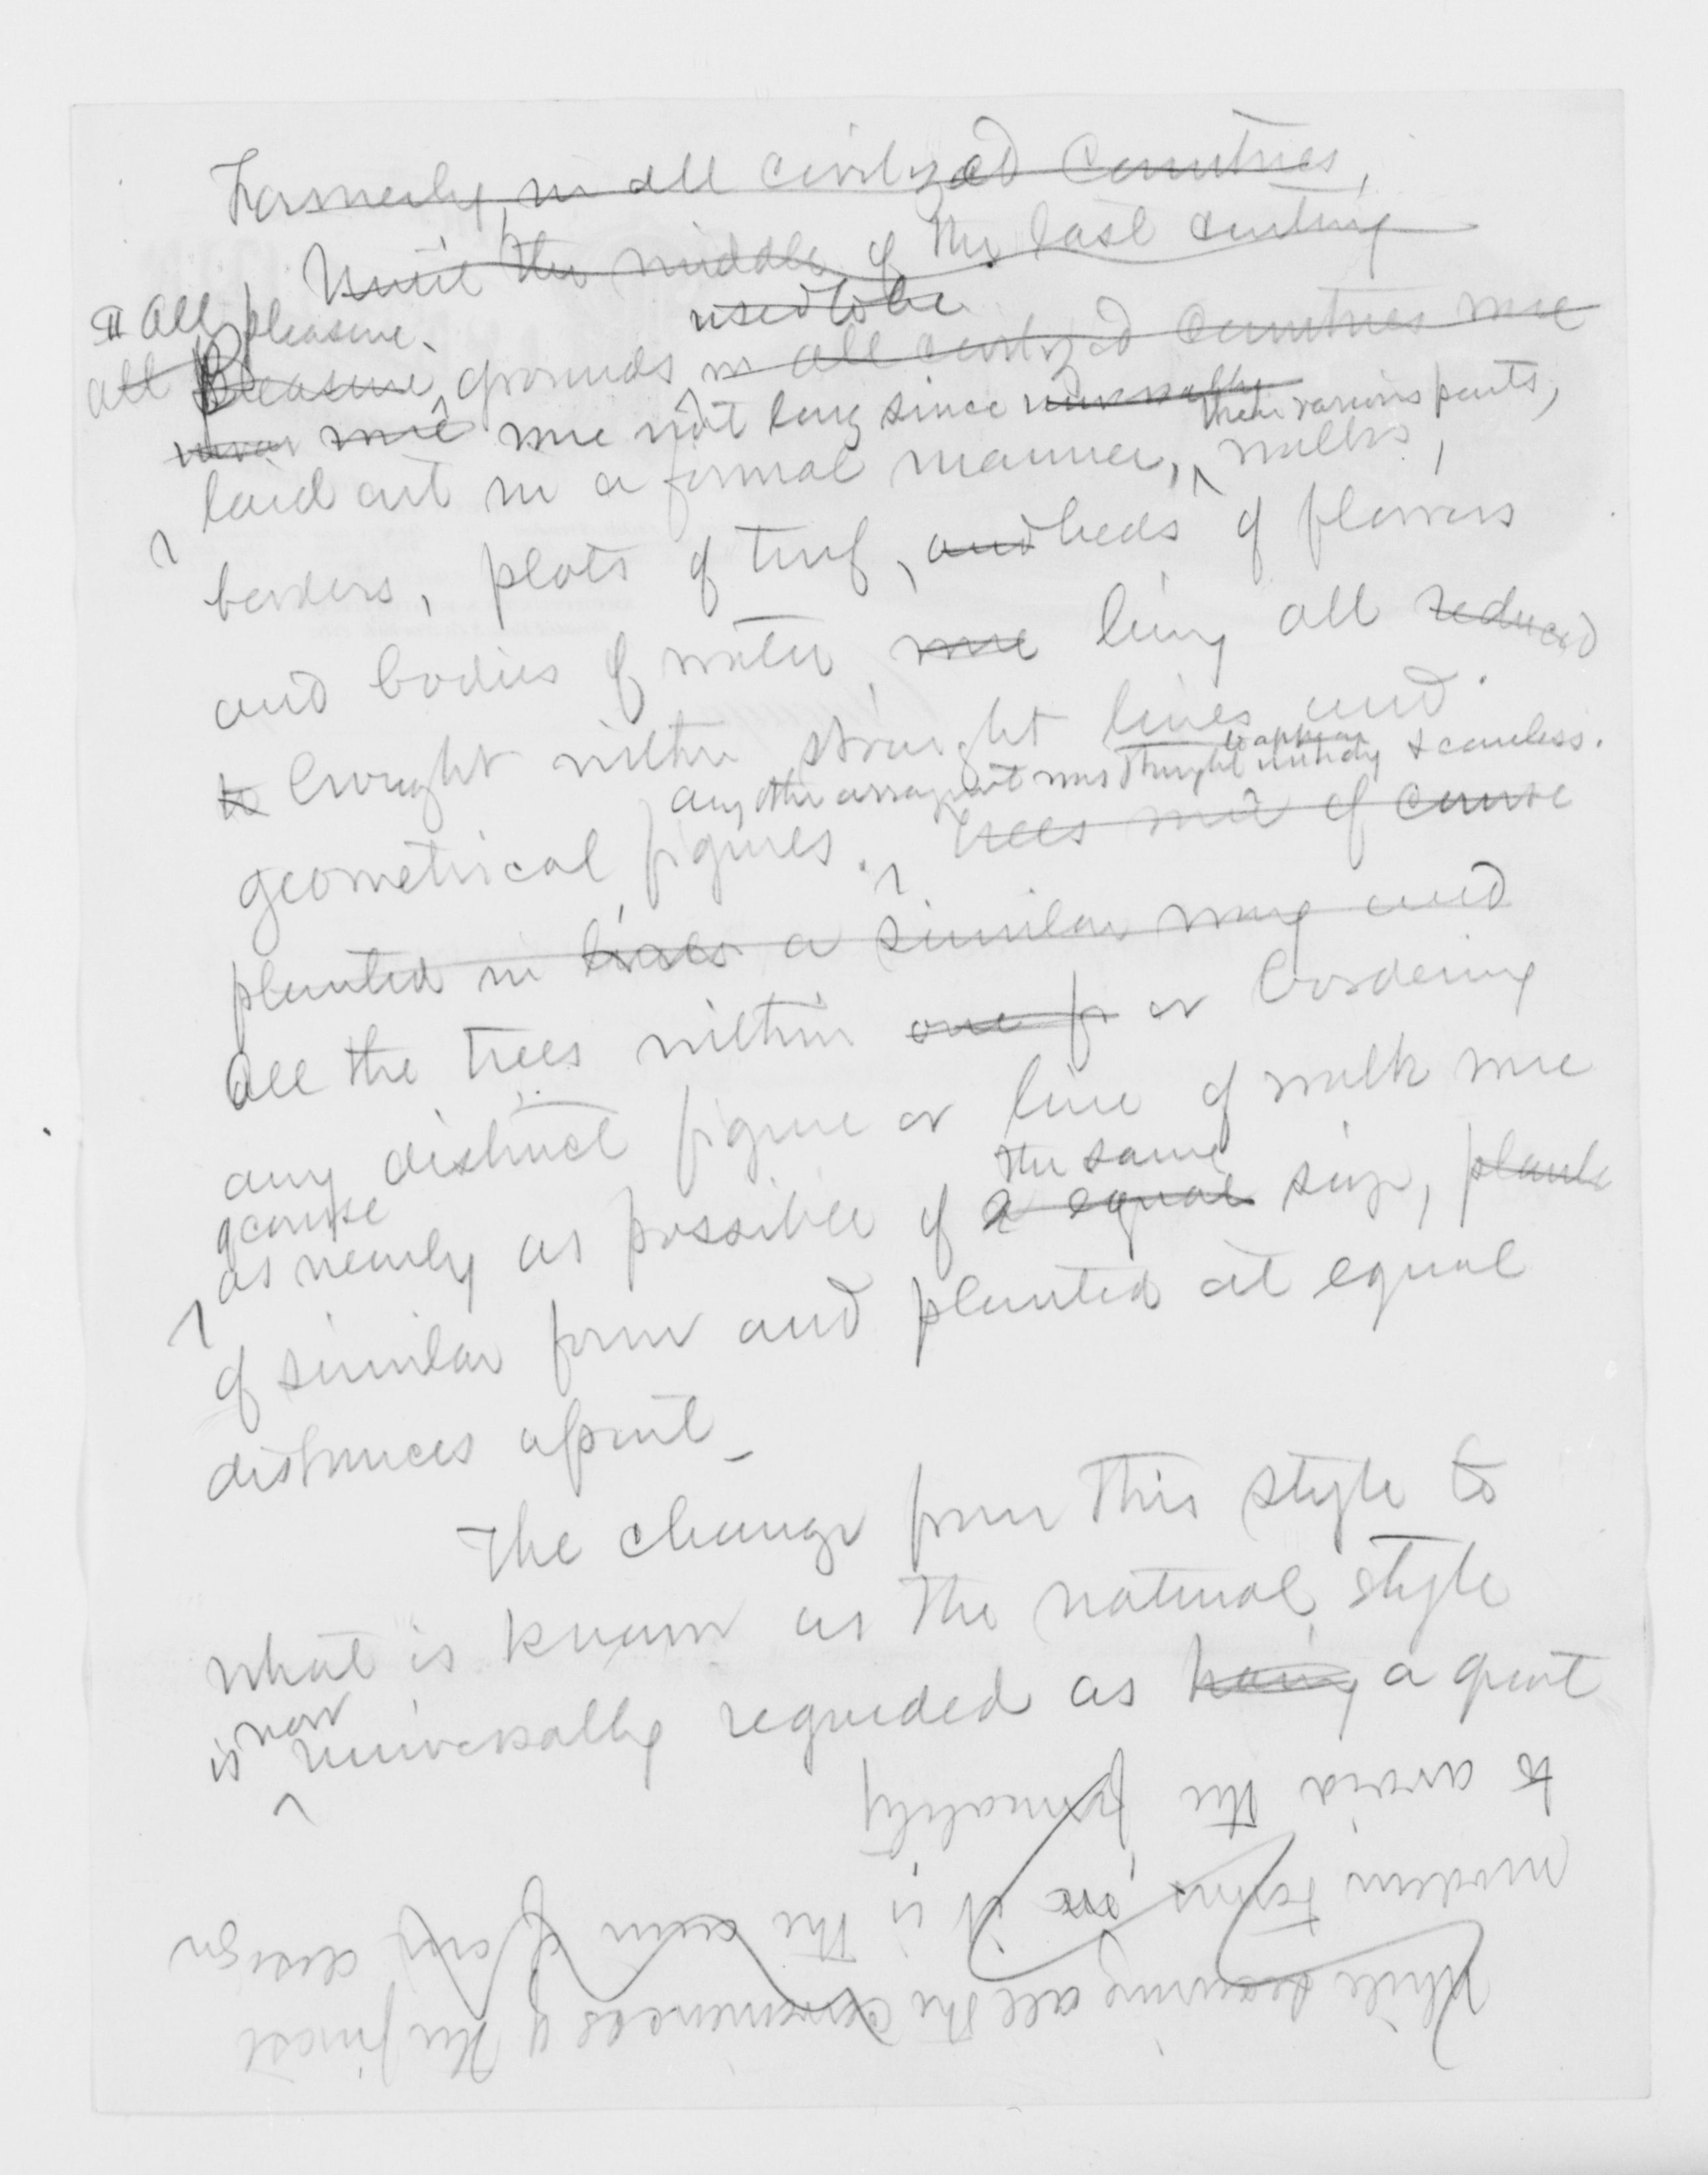 Formerly, in all civilized Countries,
Until the middle of the last century
All pleasure
used to be
all Pleasure grounds in all civilized Countries were
were were not long since universally their various parts,
laid out in a formal manner, walks,
borders, plots of turf, and beds of flowers
and bodies of water, were being all reduced
to brought within straight lines and
any other arrangement was thought to appear untidy & careless.
geometrical figures. Trees were of course
planted in lines a similar way and
All the trees within one or bordering
any distinct figure or line of walk were
of course the same
as nearly as possible of a equal size, plante
of similar form and planted at equal
distances apart_
The change from this style to
what is known as the natural style
is now universally regarded as having a great
While securing all the conveniences of the finest
modern towns it is the aim of our design
to avoid the formality